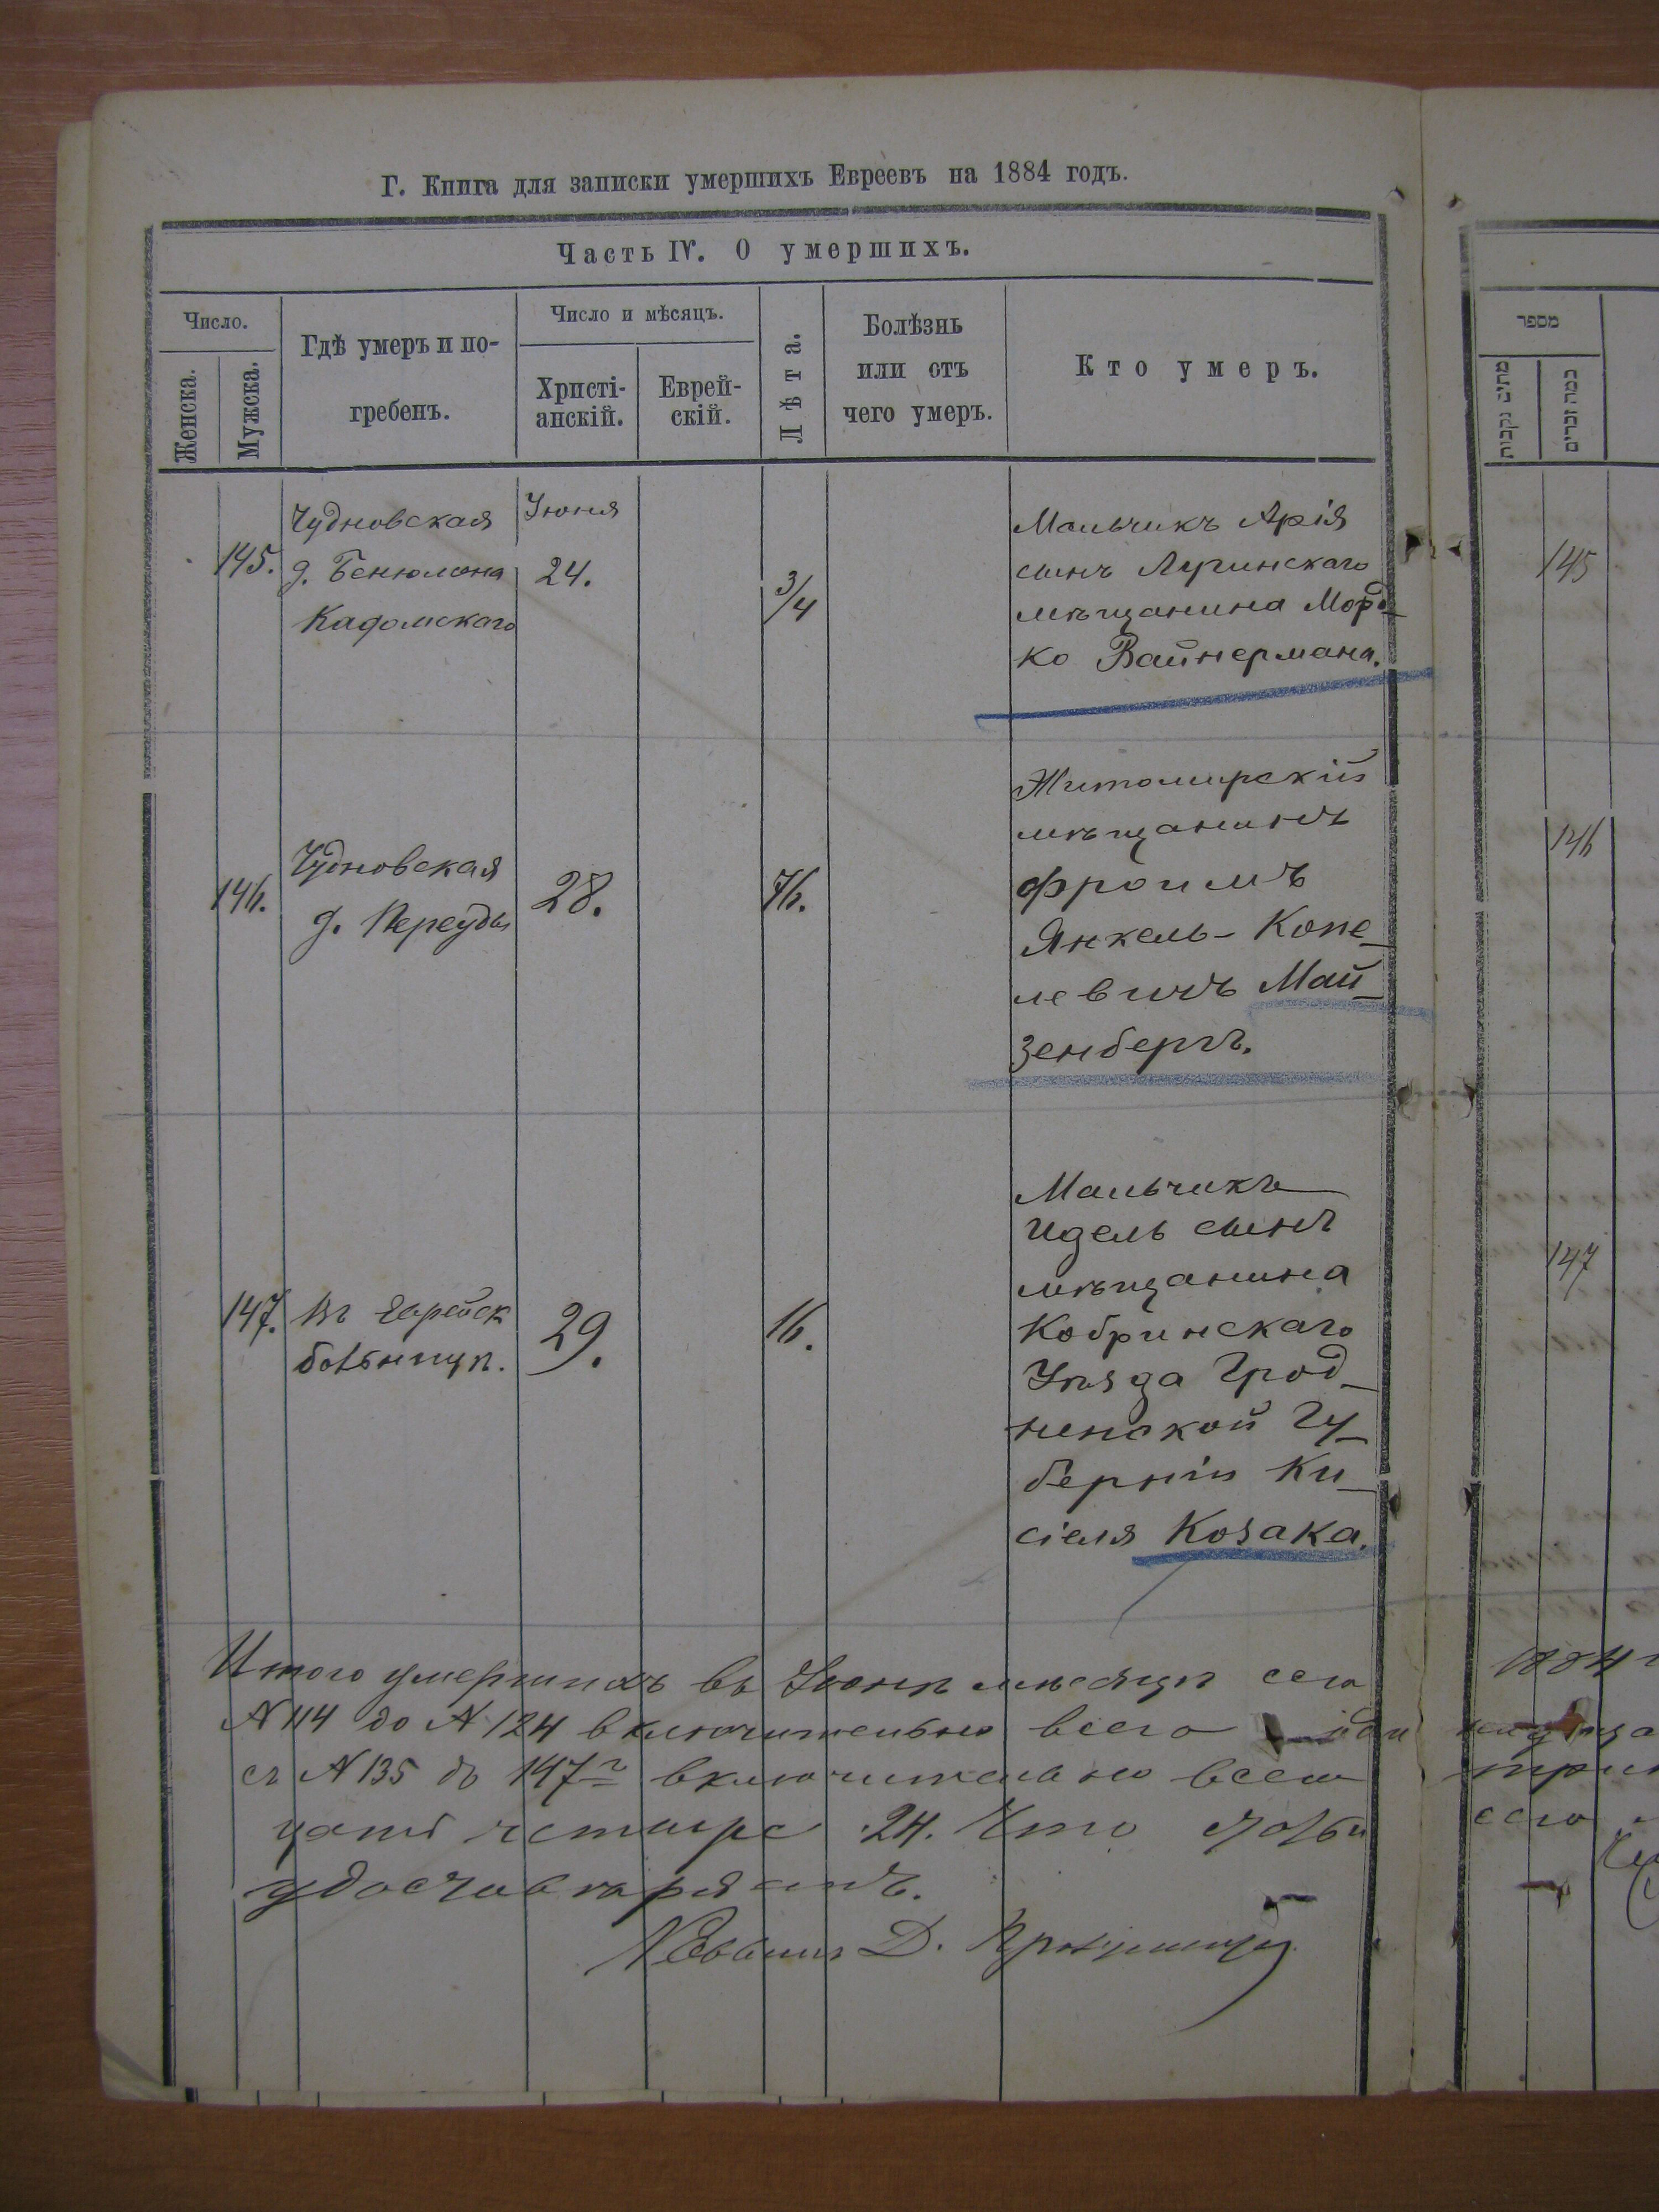 Г. Книга для записки умершихъ Евреевъ на 1884 годъ.
Часть IV. О умершихъ.
Число.
Женска.
Мужска.
Гдѣ умеръ и по-
гребенъ.
Число и мѣсяцъ.
Христі-
анскій.
Еврей-
скій.
Лѣта.
Болѣзнь
или отъ
чего умеръ.
Кто умеръ.
מספר
מתים נקבות
כמה זכרים
145.
Чудновская
д. Бенюмона
Кадомскаго
Іюня
24.
3/4
Мальчикъ Арія
сынъ Лугинскаго
мѣщанина Морд-
ко Вайнермана.
145
146.
Чудновская
д. Переуды
28.
76.
Житомирскій
мѣщанинъ
Фроимъ
Янкель-Копе-
левичъ Май-
зенбергъ.
146
147.
Въ Еврейск
больницѣ.
29.
16.
Мальчикъ
Идель сынъ
мѣщанина
Кобринскаго
Уѣзда Грод-
ненской Гу-
берніи Ки-
сіеля Козака.
147
Итого умершихъ въ Іюнѣ мѣсяцѣ сего 1884 г
№ 114 до № 124 включительно всего
съ № 135 до 147 г включительно всего
цать четыре 24. Что сего
удостовѣряемъ.
Д.